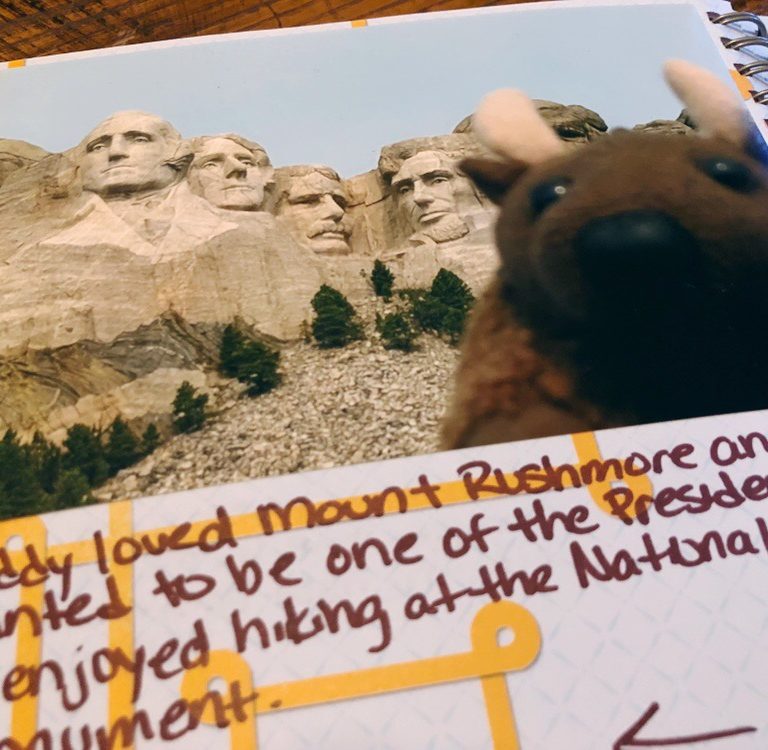 ddy loved Mount Rushmore an
nted to be one of the Preside
enjoyed hiking at the National
nument.